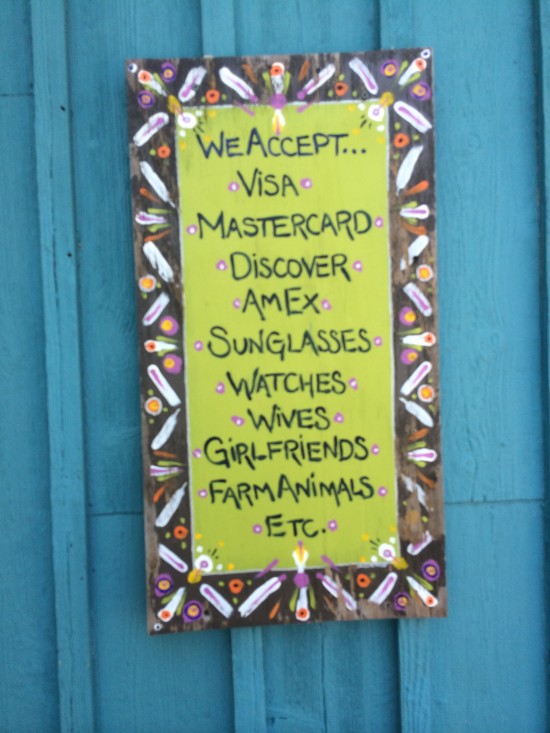 WE ACCEPT...
VISA
MASTERCARD
DISCOVER
AMEX
SUNGLASSES
WATCHES
WIVES
GIRLFRIENDS
FARM ANIMALS
ETC.